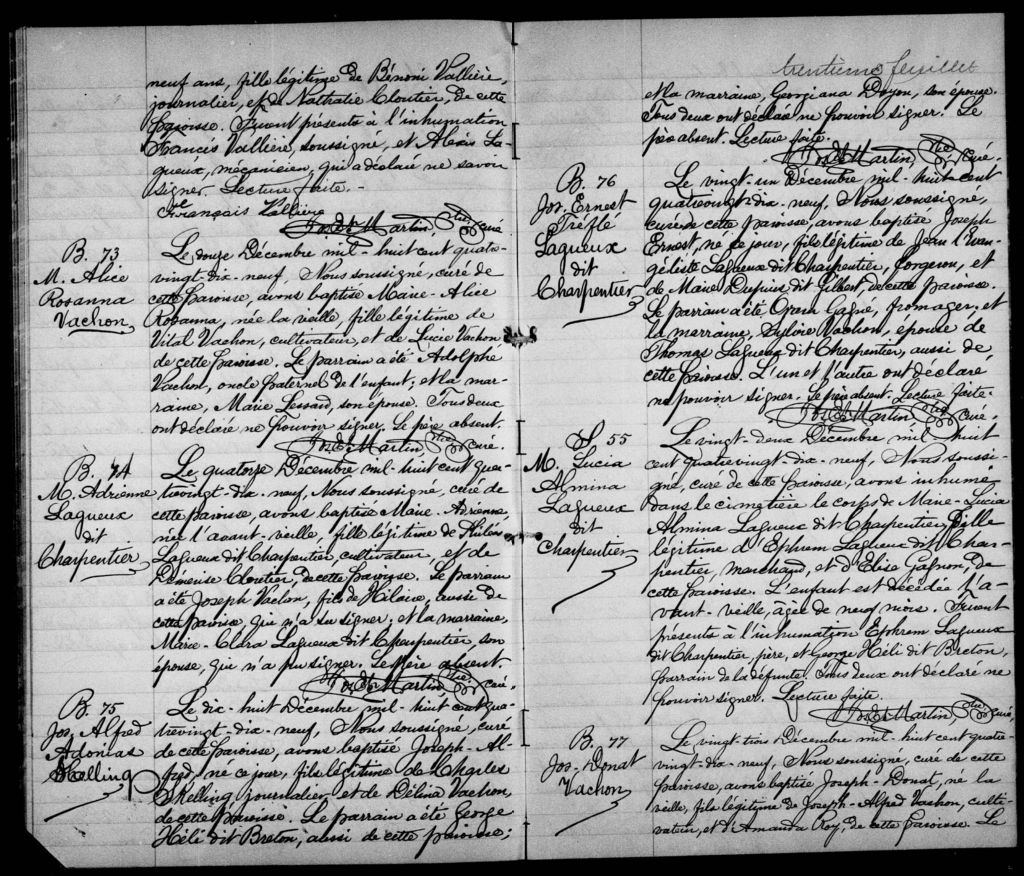 neuf ans, fille légitime de Bénoni Vallière,
journalier, et de Nathalie Cloutier, de cette
paroisse. Furent présents à l'inhumation
Francis Vallière, soussigné, et Alexis La-
gueux, mécanicien, qui a déclaré ne savoir
signer. Lecture faite.-
Français Vallière
Jos. Et Martin, Ptre curé
B. 73
M. Alice
Rosanna
Vachon,
Le douze Décembre mil-huit cent quatre-
vingt-dix-neuf, Nous soussigné, curé de
cette paroisse, avons baptisé Marie-Alice
Rosanna, née la veille, fille légitime de
Vital Vachon, cultivateur, et de Lucie Vachon
de cette paroisse. Le parrain a été Adolphe
Vachon, oncle paternel de l'enfant; et la mar-
raine, Marie Lessard, son épouse. Tous deux
ont déclaré ne pouvoir signer. Le père absent.
Jos. Et Martin Ptre curé.
B. 74
M. Adrienne
Lagueux
dit
Charpentier
Le quatorze Décembre mil-huit cent qua-
trevingt-dix-neuf, Nous soussigné, curé de
cette paroisse, avons baptisé Marie-Adrienne,
née l'avant-veille, fille légitime de Philéas
Lagueux dit Charpentier, cultivateur, et de
Démerise Cloutier, de cette paroisse. Le parrain
a été Joseph Vachon, fils de Hilaire, aussi de
cette paroisse, qui n'a su signer, et la marraine,
Marie-Clara Lagueux dit Charpentier, son
épouse, qui n'a pu signer. Le père absent.
Jos. Et Martin Ptre curé.
B. 75
Jos. Alfred
Adonias
Skelling
Le dix-huit Décembre mil-huit cent qua-
trevingt-dix-neuf, Nous soussigné, curé
de cette paroisse, avons baptisé Joseph-Al-
fred, né ce jour, fils légitime de Charles
Skelling journalier et de Délina Vachon,
de cette paroisse. Le parrain a été George
Héli dit Breton, aussi de cette paroisse;
trentième feuillet
et la marraine, Georgiana Doyon, son épouse.
Tous deux ont déclaré ne pouvoir signer. Le
père absent. Lecture faite.
Jos. Et Martin Ptre curé.
B. 76
Jos. Ernest
Tréflé
Lagueux
dit
Charpentier
Le vingt-un Décembre mil-huit cent
quatrevingt-dix-neuf, Nous soussigné,
curé de cette paroisse, avons baptisé Joseph
Ernest, né ce jour, fils légitime de Jean l'Evan-
géliste Lagueux dit Charpentier, forgeron, et
de Marie Dupuis dit Gilbert de cette paroisse.
Le parrain a été Gagné, fromager, et
la marraine, Sylvie Vachon, épouse de
Thomas Lagueux dit Charpentier, aussi de
cette paroisse. L'un et l'autre ont déclaré
ne pouvoir signer. Le père absent. Lecture faite.
Jos. Et Martin Ptre curé.
S. 55
M. Lucia
Almina
Lagueux
dit
Charpentier
Le vingt-deux Décembre mil-huit
cent quatrevingt-dix-neuf, Nous soussi-
gné, curé de cette paroisse, avons inhumé
dans le cimetière le corps de Marie-Lucia
Almina Lagueux dit Charpentier, fille
légitime d'Ephrem Lagueux dit Char-
pentier, marchand, et d'Elise Gagnon, de
cette paroisse. L'enfant est décédée l'a-
vant-veille, agée de neuf mois. Furent
présents à l'inhumation Ephrem Lagueux
dit Charpentier, père, et George Héli dit Breton,
parrain de la défunte. Tous deux ont déclaré ne
pouvoir signer. Lecture faite.
Jos. Et Martin Ptre curé.
B. 77
Jos. Donat
Vachon
Le vingt-trois Décembre mil-huit cent quatre-
vingt-dix-neuf, Nous soussigné, curé de cette
paroisse, avons baptisé Joseph-Donat, né la
veille, fils légitime de Joseph-Alfred Vachon, culti-
vateur, et d'Amanda Roy, de cette paroisse. Le